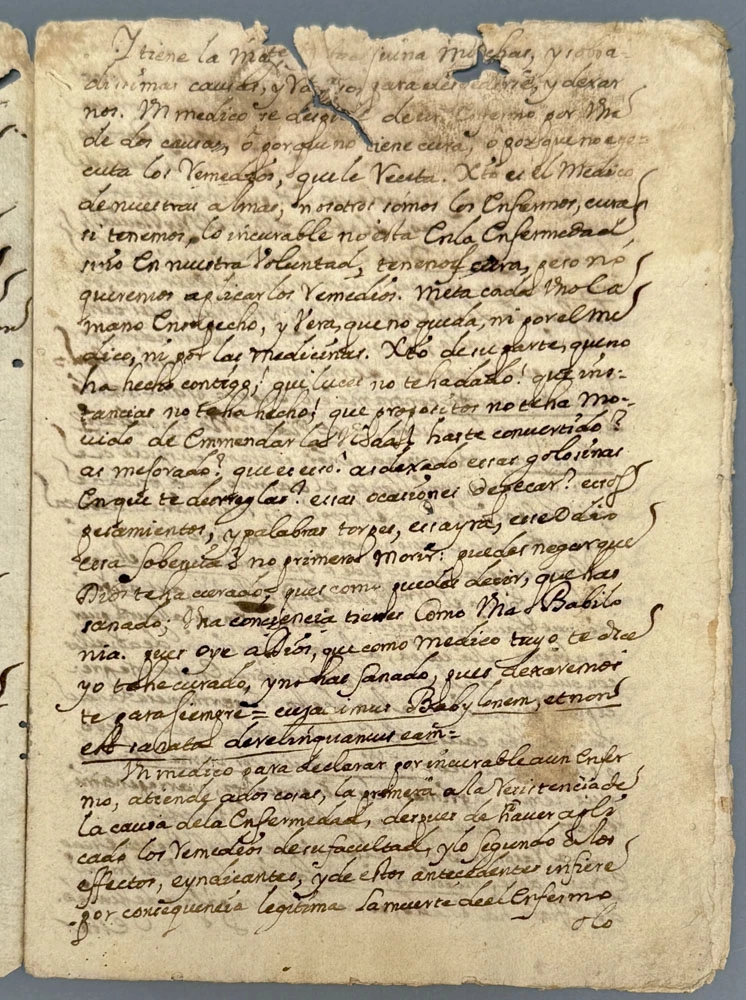 Y tiene la muchas, y sobra-
dissimas causas, y para despedirse, y dexar
nos. Vn medico se despide de un Enfermo por Vna
de dos causas, ò porque no tiene cura, o porque no exe-
cuta los Remedios, que le Receta. Xto es el Medico
de nuestras almas, nosotros somos los Enfermos, cura
si tenemos, lo incurable no esta En la Enfermedad,
sino En nuestra Voluntad, tenemos cura, pero no
queremos aplicar los Remedios. Meta cada Vno la
mano En su pecho, y Vera, que no queda, ni por el me
dico, ni por las medicinas. Xto de su parte, que no
ha hecho contigo! que luces no te ha dado! que ins-
tancias no te ha hecho! que propositos no te ha mo-
uido de Emmendar la Vida! haste convertido?
as mejorado? que es esso? as dexado essas golosinas
En que te desreglas? essas ocasiones de pecar? essos
pensamientos, y palabras torpes, essa yra, esse Odio
essa soberuia? no primero Morir: puedes negar que
Dios te ha curado? pues como puedes decir, que has
sanado; Vna conciencia tienes Como Vna Babilo
nia. pues oye a Dios, que como medico tuyo te dice
yo te he curado, y no has sanado, pues dexaremos
te para siempre = curavimus Babylonem, et non
est sanata derelinquamus eam =
Vn medico para declarar por incurable a un Enfer
mo, atiende a dos cosas, la primera a la Resistencia de
la causa de la Enfermedad, despues de hauer apli
cado los Remedios de su facultad, y lo segundo a los
effectos, e yndicantes, y de estos antecedentes infiere
por consequencia legitima la muerte de el Enfermo